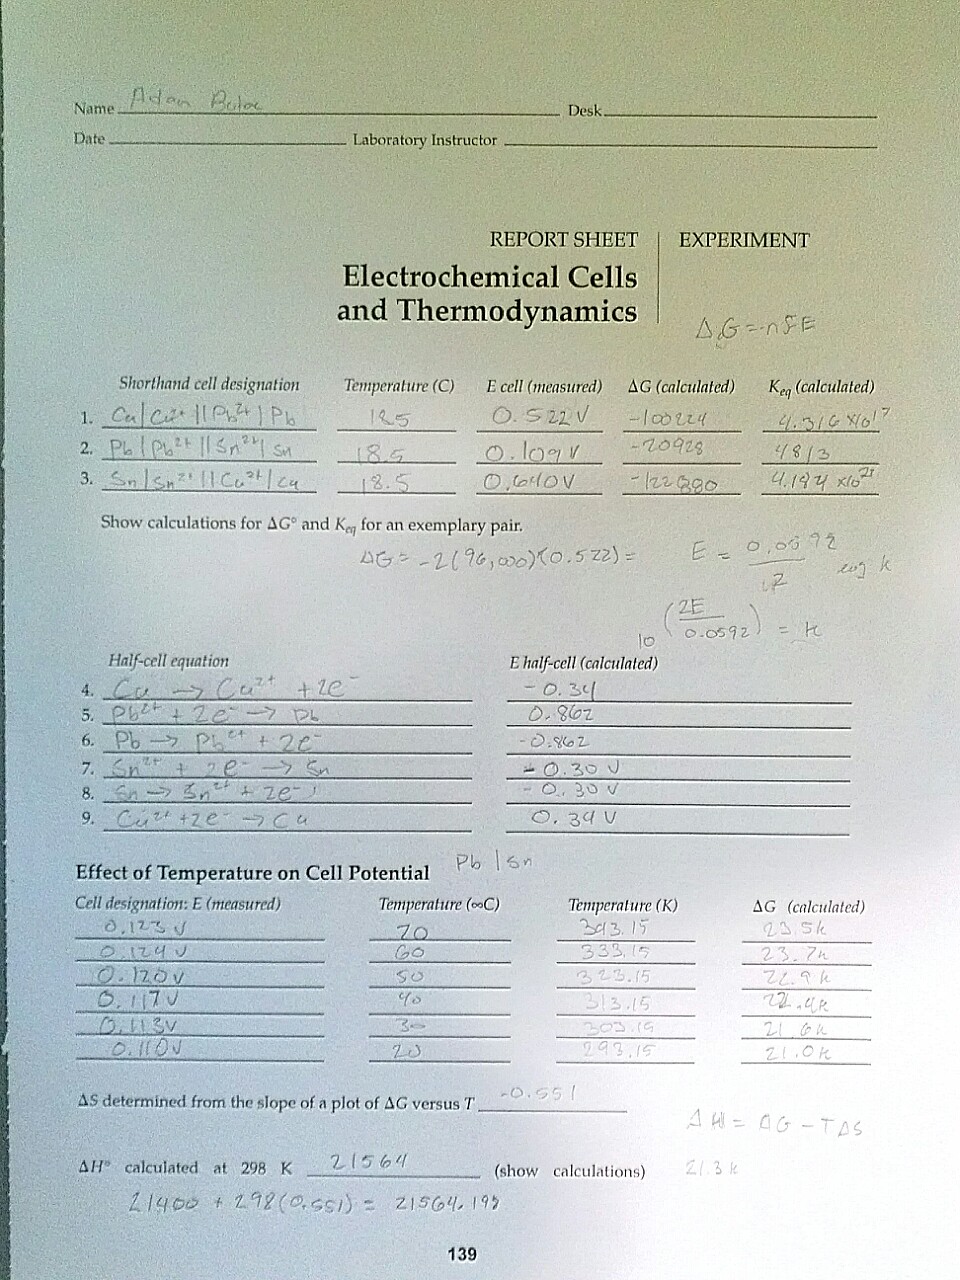 Name Adan Desk
Date Laboratory Instructor
REPORT SHEET EXPERIMENT
Electrochemical Cells
and Thermodynamics
ΔG = -nFE
Shorthand cell designation Temperature (C) E cell (measured) ΔG (calculated) Keq (calculated)
1. Cu | Cu²⁺ || Pb²⁺ | Pb 18.5 0.522 V -100224 4.316 x10¹⁷
2. Pb | Pb²⁺ || Sn²⁺ | Sn 18.5 0.109 V -20928 4813
3. Sn | Sn²⁺ || Cu²⁺ | Cu 18.5 0.640 V -122880 4.194 x10²¹
Show calculations for ΔG° and Keq for an exemplary pair.
ΔG = -2(96,000)(0.522) = E = 0.0592 / 2 log k
10^(2E / 0.0592) = k
Half-cell equation E half-cell (calculated)
4. Cu → Cu²⁺ + 2e⁻ -0.34
5. Pb²⁺ + 2e⁻ → Pb 0.862
6. Pb → Pb²⁺ + 2e⁻ -0.862
7. Sn²⁺ + 2e⁻ → Sn 0.30 V
8. Sn → Sn²⁺ + 2e⁻ -0.30 V
9. Cu²⁺ + 2e⁻ → Cu 0.34 V
Effect of Temperature on Cell Potential Pb | Sn
Cell designation: E (measured) Temperature (∞C) Temperature (K) ΔG (calculated)
0.123 V 70 343.15 23.5k
0.124 V 60 333.15 23.7k
0.120 V 50 323.15 22.9k
0.117 V 40 313.15 22.4k
0.113 V 30 303.15 21.6k
0.110 V 20 293.15 21.0k
ΔS determined from the slope of a plot of ΔG versus T -0.551
ΔH = ΔG - TΔS
ΔH° calculated at 298 K 21564 (show calculations) 21.3k
21400 + 298(0.551) = 21564.198
139